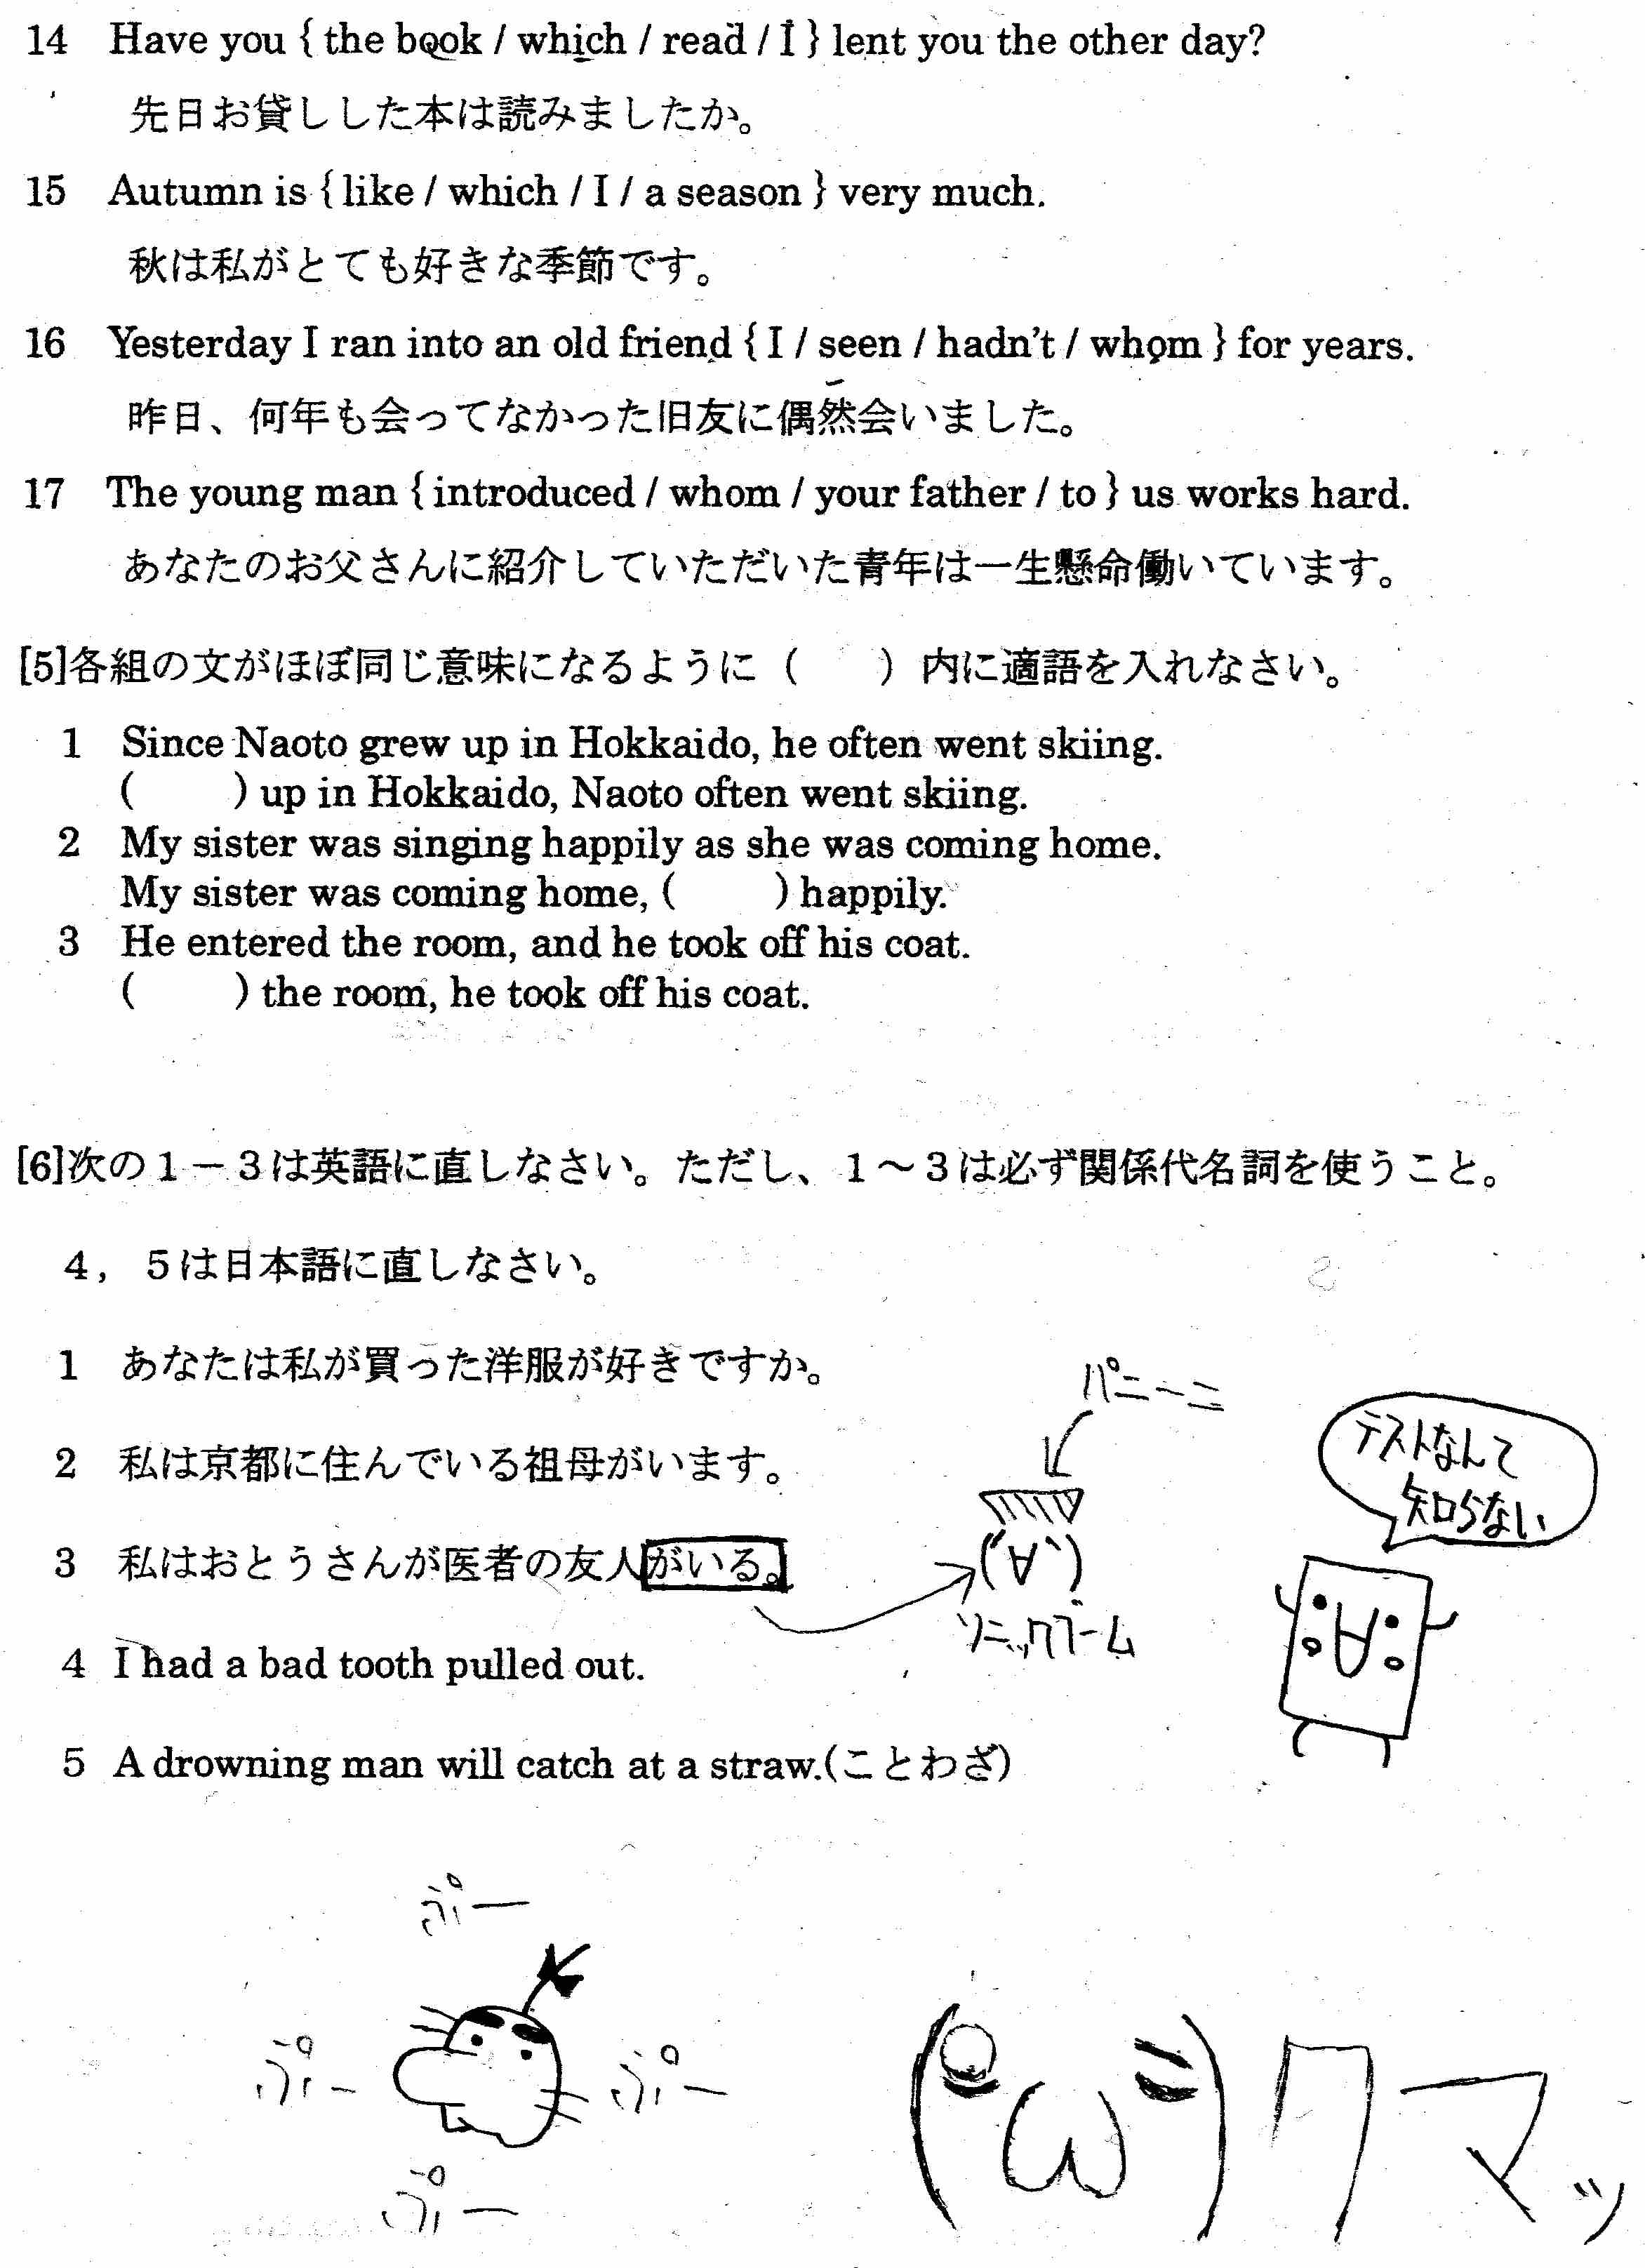 14 Have you { the book / which / read / I } lent you the other day?
先日お貸しした本は読みましたか。
15 Autumn is { like / which / I / a season } very much.
秋は私がとても好きな季節です。
16 Yesterday I ran into an old friend { I / seen / hadn't / whom } for years.
昨日、何年も会ってなかった旧友に偶然会いました。
17 The young man { introduced / whom / your father / to } us works hard.
あなたのお父さんに紹介していただいた青年は一生懸命働いています。
[5]各組の文がほぼ同じ意味になるように（　　）内に適語を入れなさい。
1 Since Naoto grew up in Hokkaido, he often went skiing.
(　　) up in Hokkaido, Naoto often went skiing.
2 My sister was singing happily as she was coming home.
My sister was coming home, (　　) happily.
3 He entered the room, and he took off his coat.
(　　) the room, he took off his coat.
[6]次の１－３は英語に直しなさい。ただし、１～３は必ず関係代名詞を使うこと。
４，５は日本語に直しなさい。
1 あなたは私が買った洋服が好きですか。
パニーニ
テストなんて
知らない
2 私は京都に住んでいる祖母がいます。
3 私はおとうさんが医者の友人がいる。
(´∀`)
ソニックブーム
4 I had a bad tooth pulled out.
5 A drowning man will catch at a straw.(ことわざ)
ぷー
ぷー
ぷー
ぷー
クマッ